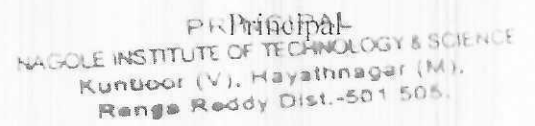 PRINCIPAL
Principal
NAGOLE INSTITUTE OF TECHNOLOGY & SCIENCE
Kuntloor (V), Hayathnagar (M),
Ranga Reddy Dist.-501 505.